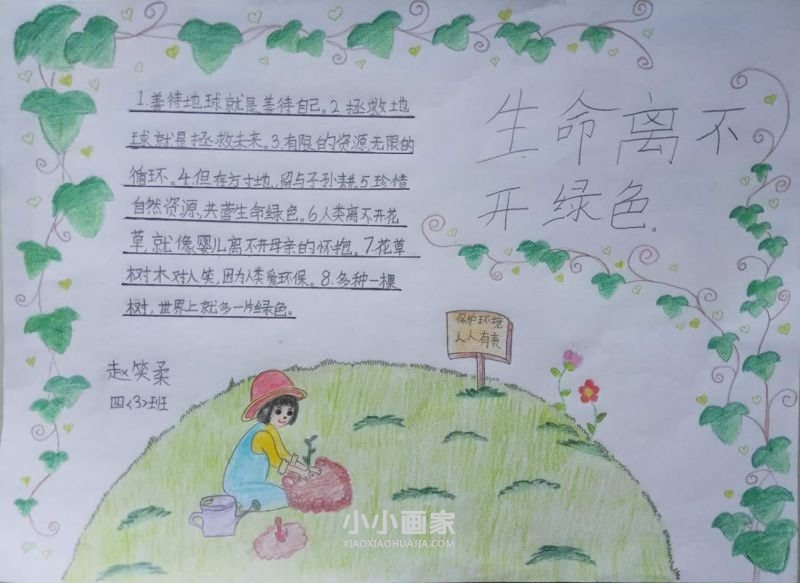 1.善待地球就是善待自己。2拯救地
球就是拯救未来。3.有限的资源,无限的
循环。4.但存方寸地,留与子孙耕.5.珍惜
自然资源,共营生命绿色。6人类离不开花
草,就像婴儿离不开母亲的怀抱。7.花草
树木对人笑,因为人类爱环保。8.多种一棵
树,世界上就多一片绿色。
生命离不
开绿色.
保护环境
人人有责
赵笑柔
四<3>班
小小画家
XIAOXIAOHUAJIA.COM